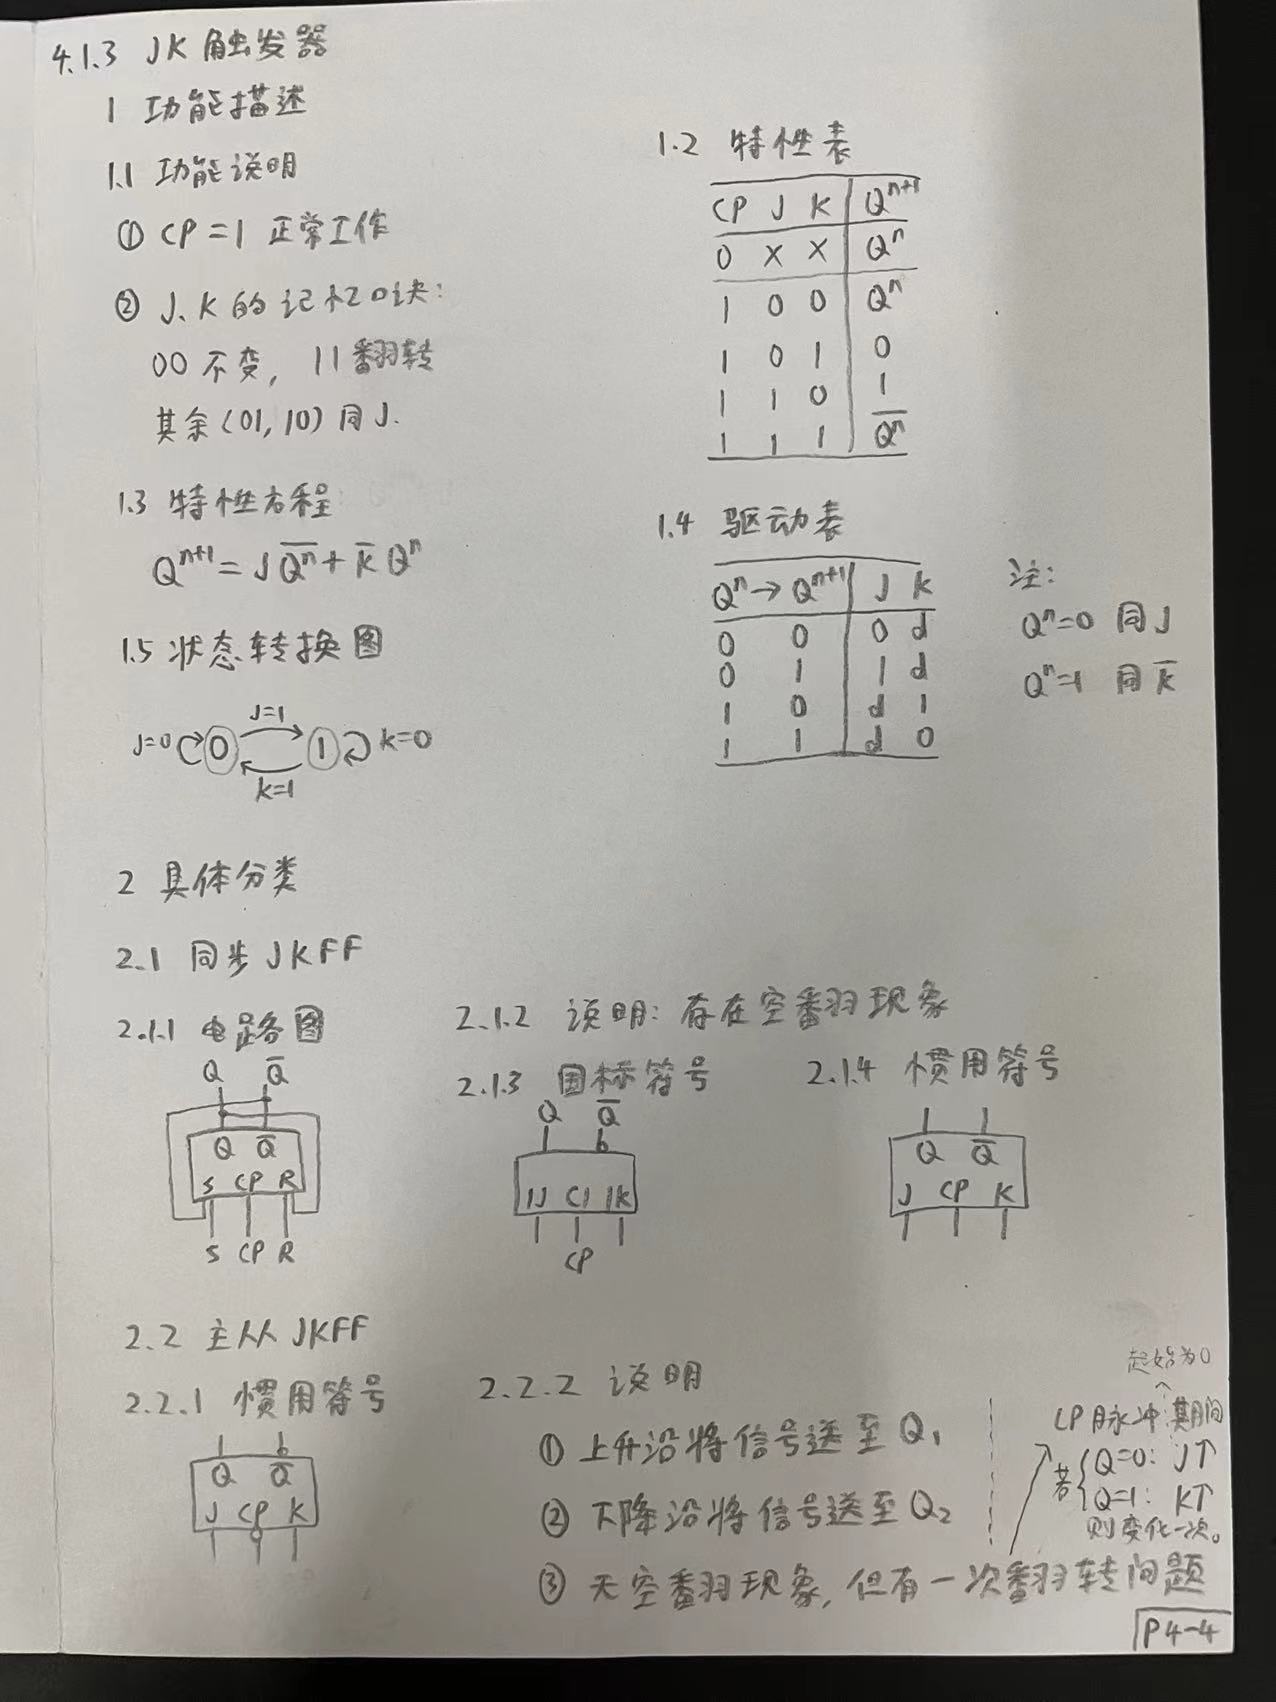 4.1.3 JK 触发器
1 功能描述
1.1 功能说明
① CP=1 正常工作
② J、K的记忆口诀:
00不变, 11翻转
其余(01,10)同J.
1.2 特性表
CP J K Qⁿ⁺¹
0 × × Qⁿ
1 0 0 Qⁿ
1 0 1 0
1 1 0 1
1 1 1 Q̅ⁿ
1.3 特性方程
Qⁿ⁺¹ = J Q̅ⁿ + K̅ Qⁿ
1.4 驱动表
Qⁿ→Qⁿ⁺¹ J K
0 0 0 d
0 1 1 d
1 0 d 1
1 1 d 0
注:
Qⁿ=0 同J
Qⁿ=1 同K̅
1.5 状态转换图
J=1
J=0 0 1 K=0
K=1
2 具体分类
2.1 同步JKFF
2.1.1 电路图
Q Q̅
Q Q̅
S CP R
S CP R
2.1.2 说明: 存在空翻现象
2.1.3 国标符号
Q Q̅
1J C1 1K
CP
2.1.4 惯用符号
Q Q̅
J CP K
2.2 主从JKFF
2.2.1 惯用符号
Q Q̅
J CP K
2.2.2 说明
① 上升沿将信号送至Q₁
② 下降沿将信号送至Q₂
③ 无空翻现象, 但有一次翻转问题
起始为0
CP脉冲期间
若 Q=0: J↑
Q=1: K↑
则变化一次。
P4-4